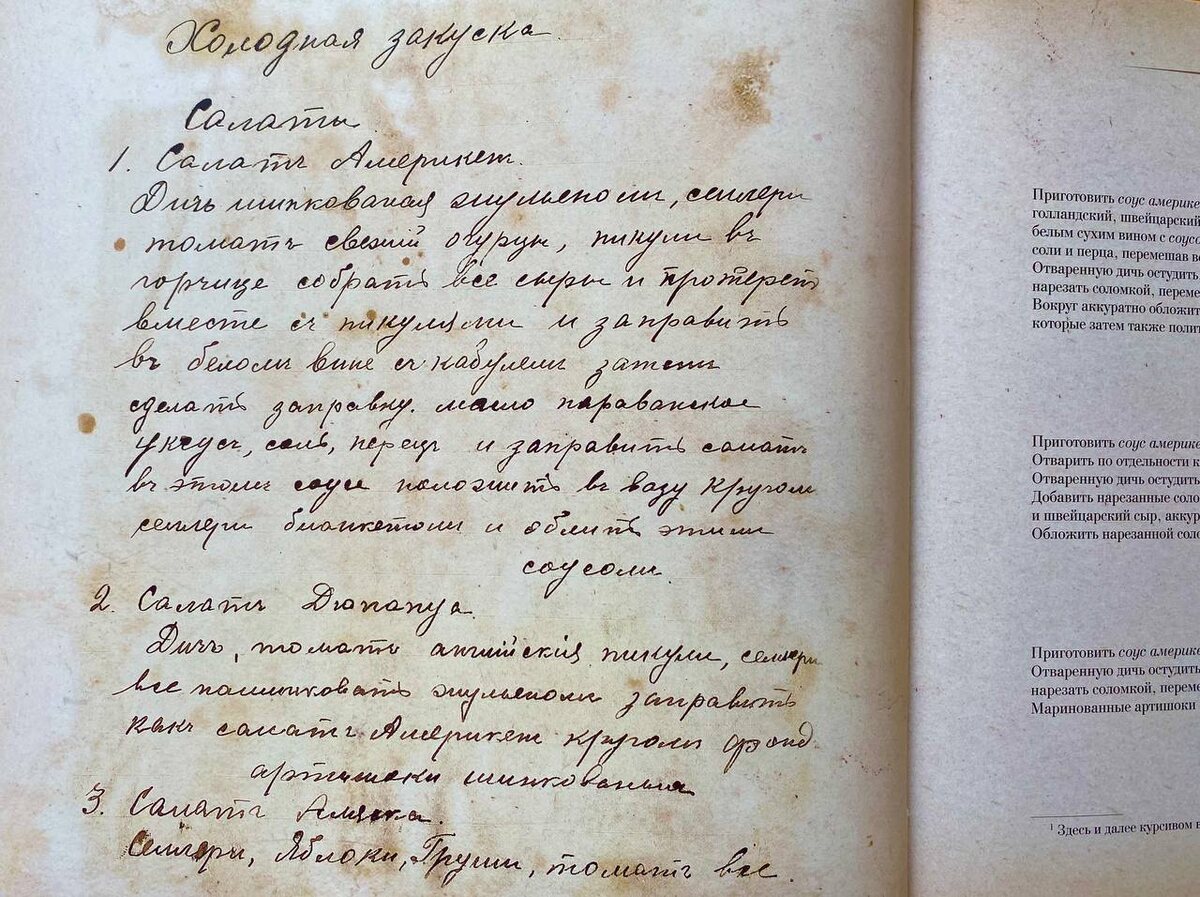 Холодная закуска
Салаты
1. Салатъ Америкен.
Дичь шинкованая жульеномъ, селлери
томатъ свежий огурцы, пикули въ
горчице собрать все сыры и протереть
вместе съ пикулями и заправить
въ беломъ вине съ кабулемъ затемъ
сделать заправку. масло прованское
уксусъ, соль, перецъ и заправить салатъ
въ этомъ соусе положить въ вазу кругомъ
селлери бланкетомъ и облить этимъ
соусомъ.
2. Салатъ
Дичь, томатъ английския пикули, селлери
все нашинковать жульеномъ заправить
какъ салатъ Америкен кругомъ фонд
артишоки шинкованыя
3. Салатъ Аляска.
Селлери, Яблоки, Груши, томатъ все
Приготовить соус америке
голландский, швейцарский
белым сухим вином с соусо
соли и перца, перемешав в
Отваренную дичь остудить
нарезать соломкой, переме
Вокруг аккуратно обложит
которые затем также полит
Приготовить соус америке
Отварить по отдельности к
Отваренную дичь остудить
Добавить нарезанные соло
и швейцарский сыр, аккур
Обложить нарезанной соло
Приготовить соус америке
Отваренную дичь остудить
нарезать соломкой, переме
Маринованные артишоки
1 Здесь и далее курсивом в